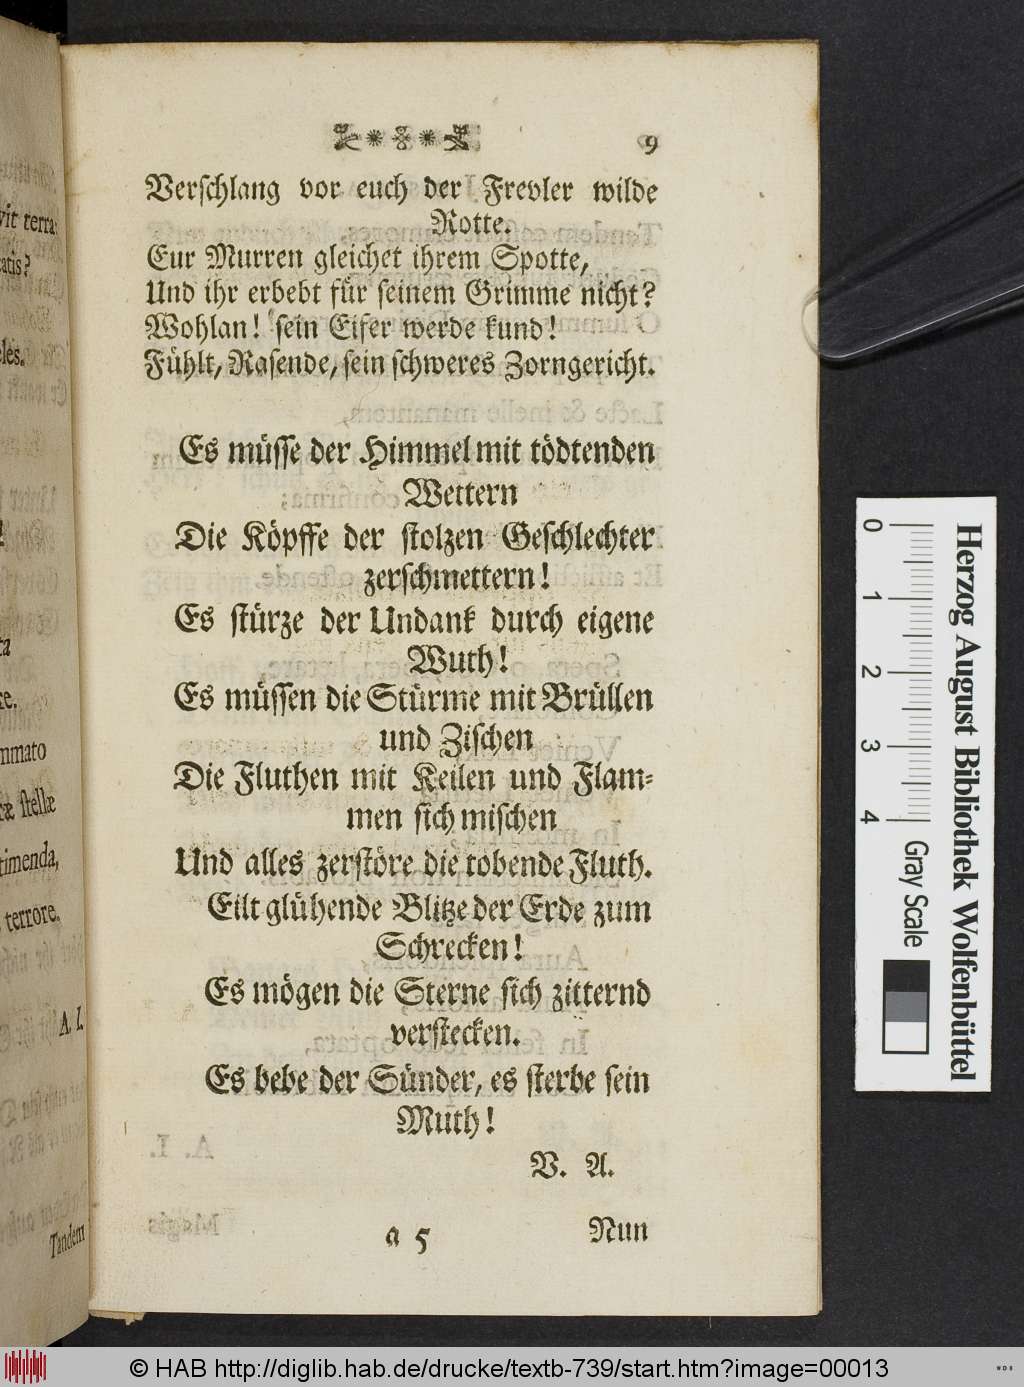 9
Verschlang vor euch der Frevler wilde
Rotte.
Eur Murren gleichet ihrem Spotte,
Und ihr erbebt für seinem Grimme nicht?
Wohlan! sein Eifer werde kund!
Fühlt, Rasende, sein schweres Zorngericht.
Es müsse der Himmel mit tödtenden
Wettern
Die Köpffe der stolzen Geschlechter
zerschmettern!
Es stürze der Undank durch eigene
Wuth!
Es müssen die Stürme mit Brüllen
und Zischen
Die Fluthen mit Keilen und Flam-
men sich mischen
Und alles zerstöre die tobende Fluth.
Eilt glühende Blitze der Erde zum
Schrecken!
Es mögen die Sterne sich zitternd
verstecken.
Es bebe der Sünder, es sterbe sein
Muth!
V. A.
a 5 Nun
vit terra:
atis?
eles.
ta
mmato
ræ stellæ
timenda,
terrore.
A. I.
Tandem
0 1 2 3 4
Gray Scale
Herzog August Bibliothek Wolfenbüttel
© HAB http://diglib.hab.de/drucke/textb-739/start.htm?image=00013